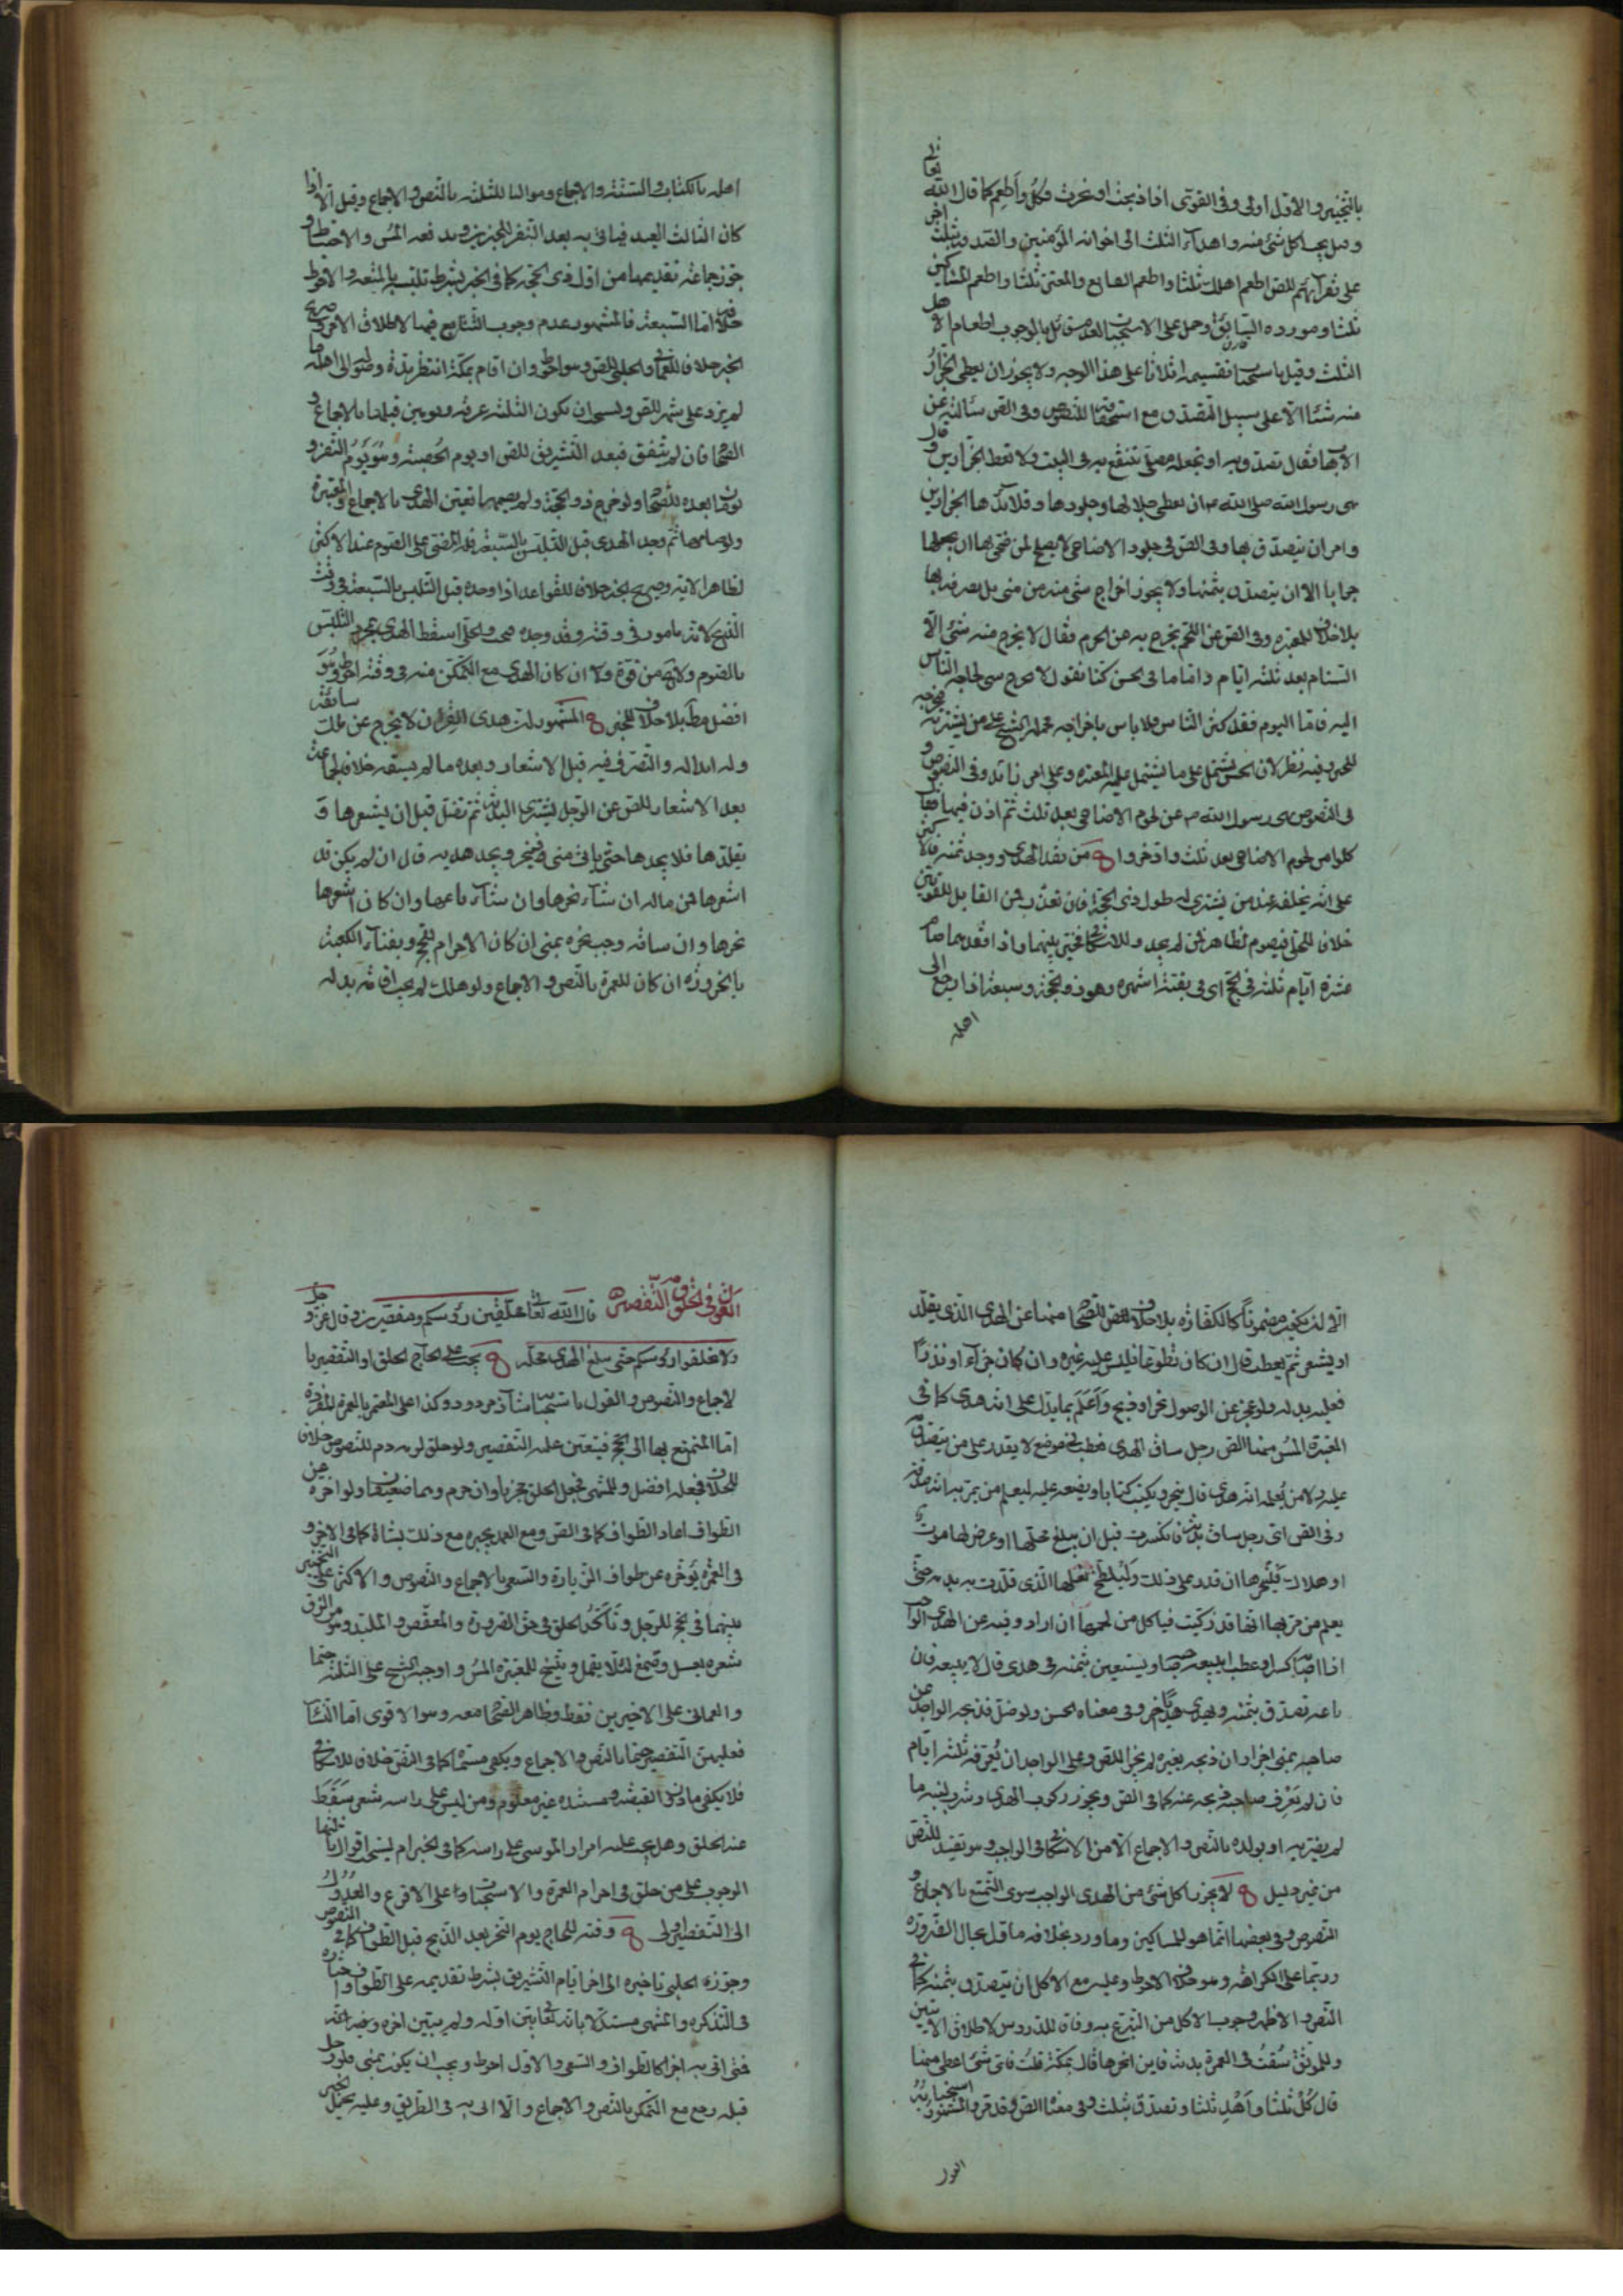 بالتخيير والاول اولى وفى القوى اذا ذبحت او نحرت فكل واطعم كما قال الله تعالى
وقيل يجب اكل شئ منه واهداء الثلث الى اخوانه المؤمنين والتصدق بثلث اخر
على فقرائهم للص اطعم اهلك ثلثا واطعم القانع والمعتر ثلثا واطعم المساكين
ثلثا ومورده السابق وحمل على الاستحباب لعدم قائل بالوجوب اطعام الاهل
الثلث وقيل باستحباب تقسيمه اثلاثا على هذا الوجه ولا يجوز ان يعطى الجزار
منه شيئا الا على سبيل التصدق مع استحقاقه للنصوص وفى الص سألته عن
الاهاب فقال تصدق به او تجعله مصلى تنتفع به فى البيت ولا تعط الجزارين وقال
نهى رسول الله صلى الله ان يعطى جلالها وجلودها وقلائدها الجزارين
وامر ان يتصدق بها وفى الص فى جلود الاضاحى لا يصلح لمن ضحى بها ان يجعلها
جرابا الا ان يتصدق بثمنها ولا يجوز اخراج شئ منه من منى بل يصرفه بها
بلا خلاف للمعتبرة وفى الص عن اللحم يخرج به من الحرم فقال لا يخرج منه شئ الا
السنام بعد ثلثة ايام واما ما فى الحسن كنا نقول لا يخرج شئ لحاجة الناس
اليه فاما اليوم فقد كثر الناس فلا باس باخراجه فحمله الشيخ على من يشتريه فيخرجه
فى النصوص نهى رسول الله عن لحوم الاضاحى بعد ثلث ثم اذن فيها فقال
كلوا من لحوم الاضاحى بعد ثلث وادخروا من فقد الهدى ووجد ثمنه فالاكثر
على انه يخلفه عند من يشترى له طول ذى الحجة فان تعذر فمن القابل للقويين
خلافا للحلى فيصوم لظاهر فمن لم يجد وللاسكافى فخير بينهما واذا فقدهما صام
عشرة ايام ثلثة فى الحج اى فى بقية اشهره وهو ذو الحجة وسبعة اذا رجع الى
اهله
اهله بالكتاب والسنة والاجماع ومواليا للثلثة بالنص والاجماع وقيل الا اذا
كان الثالث العيد فياتى به بعد النفر
جوز جماعة تقديمها من اول ذى الحجة كما فى الخبر بشرط تلبسه بالمتعة والاحوط
خلافه اما السبعة فالمشهور عدم وجوب التتابع فيها لاطلاق الامر وصريح
الخبر خلافا للعمانى والحلبى للص وهو احوط وان اقام بمكة انتظر مدة وصوله الى اهله ما
لم يزد على شهر للص ويستحب ان تكون الثلثة عرفة ويومين قبلها بالاجماع و
الصحاح فان لم يتفق فبعد التشريق للص او يوم الحصبة وهو يوم النفر و
يومان بعده للصحاح ولو خرج ذو الحجة ولم يصمها تعين الهدى بالاجماع والمعتبرة
ولو صامها ثم وجد الهدى قبل التلبس بالسبعة فله المضى على الصوم عند الاكثر
لظاهر الاية وصريح الخبر خلافا للقواعد اذا وجده قبل التلبس بالسبعة فى وقت
الذبح لانه مامور فى وقته وقد وجده والحلى اسقط الهدى بمجرد التلبس
بالصوم ولا يخ من قوة ولا ان كان الهدى مع التمكن منه فى وقته احوط وهو
افضل مطلقا بلا خلاف للخبر المشهور ان هدى القران لا يخرج عن ملك سائقه
وله ابداله والتصرف فيه قبل الاشعار وبعده ما لم يسقه خلافا لجماعة
بعد الاشعار للص عن الرجل يشترى البدنة ثم تضل قبل ان يشعرها و
يقلدها فلا يجدها حتى ياتى منى فينحر ويجد هديه قال ان لم يكن قد
اشعرها فهى من ماله ان شاء نحرها وان شاء باعها وان كان اشعرها
نحرها وان ساقه وجب نحره بمنى ان كان الاحرام للحج وبفناء الكعبة
بالحزورة ان كان للعمرة بالنص والاجماع ولو هلك لم يجب اقامة بدله
الا ان يكون مضمونا كالكفارة بلا خلاف للصحاح منها عن الهدى الذى يقلد
او يشعر ثم يعطب قال ان كان تطوعا فليس عليه غيره وان كان جزاء او نذرا
فعليه بدله ولو عجز عن الوصول نحر او ذبح واعلم بما يدل على انه هدى كما فى
المعتبرة منها الص رجل ساق الهدى فعطب فى موضع لا يقدر على من يتصدق به
عليه ولا من يعلمه انه هدى قال ينحره ويكتب كتابا ويضعه عليه ليعلم من يمر به انه صدقة
وفى الص اى رجل ساق بدنة فانكسرت قبل ان يبلغ محلها او عرض لها موت
او هلاك فلينحرها ان قدر على ذلك وليلطخ نعلها الذى قلدت به بدم حتى
يعلم من مر بها انها قد زكيت فياكل من لحمها ان اراد وفيه عن الهدى الواجب
اذا اصابه كسر او عطب ايبيعه صاحبه ويستعين بثمنه فى هدى قال لا يبيعه فان
باعه تصدق بثمنه ويهدى هديا اخر وفى معناه الحسن ولو ضل فذبحه الواجد عن
صاحبه بمنى اجزأ وان ذبحه بغيره لم يجز للص وعلى الواجد ان يعرفه ثلثة ايام
فان لم يعرف صاحبه ذبحه عنه كما فى الص ويجوز ركوب الهدى وشرب لبنه ما
لم يضر به او بولده بالنص والاجماع الا من الاسكافى فى الواجب وهو تقييد للنص
من غير دليل لا يجوز اكل شئ من الهدى الواجب سوى التمتع بالاجماع و
النصوص وفى بعضها انما هو للمساكين وما ورد بخلافه ماول بحال الضرورة
وربما على الكراهة وهو خلاف الاحوط وعليه مع الاكل ان يتصدق بثمنه كما فى
النص والاظهر وجوب الاكل من المتبرع به وفاقا للدروس لاطلاق الايتين
وللموثق سقت فى العمرة بدنة فاين انحرها قال بمكة قلت فاى شئ اعطى منها
قال كل ثلثا واهد ثلثا وتصدق بثلث وفى معناه الص وقد مر والمشهور استحبابه
القول
القول فى الحلق والتقصير قال الله تعالى محلقين رؤسكم ومقصرين وقال عز وجل
ولا تحلقوا رؤسكم حتى يبلغ الهدى محله يجب على الحاج الحلق او التقصير با
لاجماع والنصوص والقول باستحبابه شاذ مردود وكذا على المعتمر بالعمرة المفردة
اما المتمتع بها الى الحج فيتعين عليه التقصير ولو حلق لزمه دم للنصوص خلافا
للخلاف فجعله افضل وللمنتهى فجعل الحلق مجزيا وان حرم وهما ضعيفان ولو اخره عن
الطواف اعاد الطواف كما فى الص ومع العمد يجبره مع ذلك بشاة كما فى الاخر و
فى العمرة يؤخره عن طواف الزيارة والسعى بالاجماع والنصوص والاكثر على التخيير
بينهما فى الحج للرجل وتأكد الحلق فى حق الصرورة والمعقص والملبد وهو من الزق
شعره بعسل وصمغ لئلا يقمل ويتسخ للمعتبرة واوجبه الشيخ على الثلثة حتما
والعمانى على الاخيرين فقط وظاهر الصحاح معه وهو الاقوى اما النساء
فعليهن التقصير حتما بالنص والاجماع ويكفى مسماه كما فى النص خلافا للاسكافى
فلا يكفى ما دون القبضة ومستنده غير معلوم ومن ليس على راسه شعر سقط
عند الحلق وهل يجب عليه امرار الموسى على راسه كما فى الخبر ام يستحب اقوال ثالثها
الوجوب على من حلق فى احرام العمرة والاستحباب على الاقرع والعدول
الى التقصير اولى وقته للحاج يوم النحر بعد الذبح قبل الطواف كما فى النصوص
وجوز الحلبى تاخيره الى اخر ايام التشريق بشرط تقديمه على الطواف واختاره
فى التذكره والمنتهى مستدلا بانه تعالى بين اوله ولم يبين اخره
فمتى اتى به اجزا كالطواف والسعى والاول احوط ويجب ان يكون بمنى فلو رحل
قبله رجع مع التمكن بالنص والاجماع والا اتى به فى الطريق وعليه يحمل الخبر